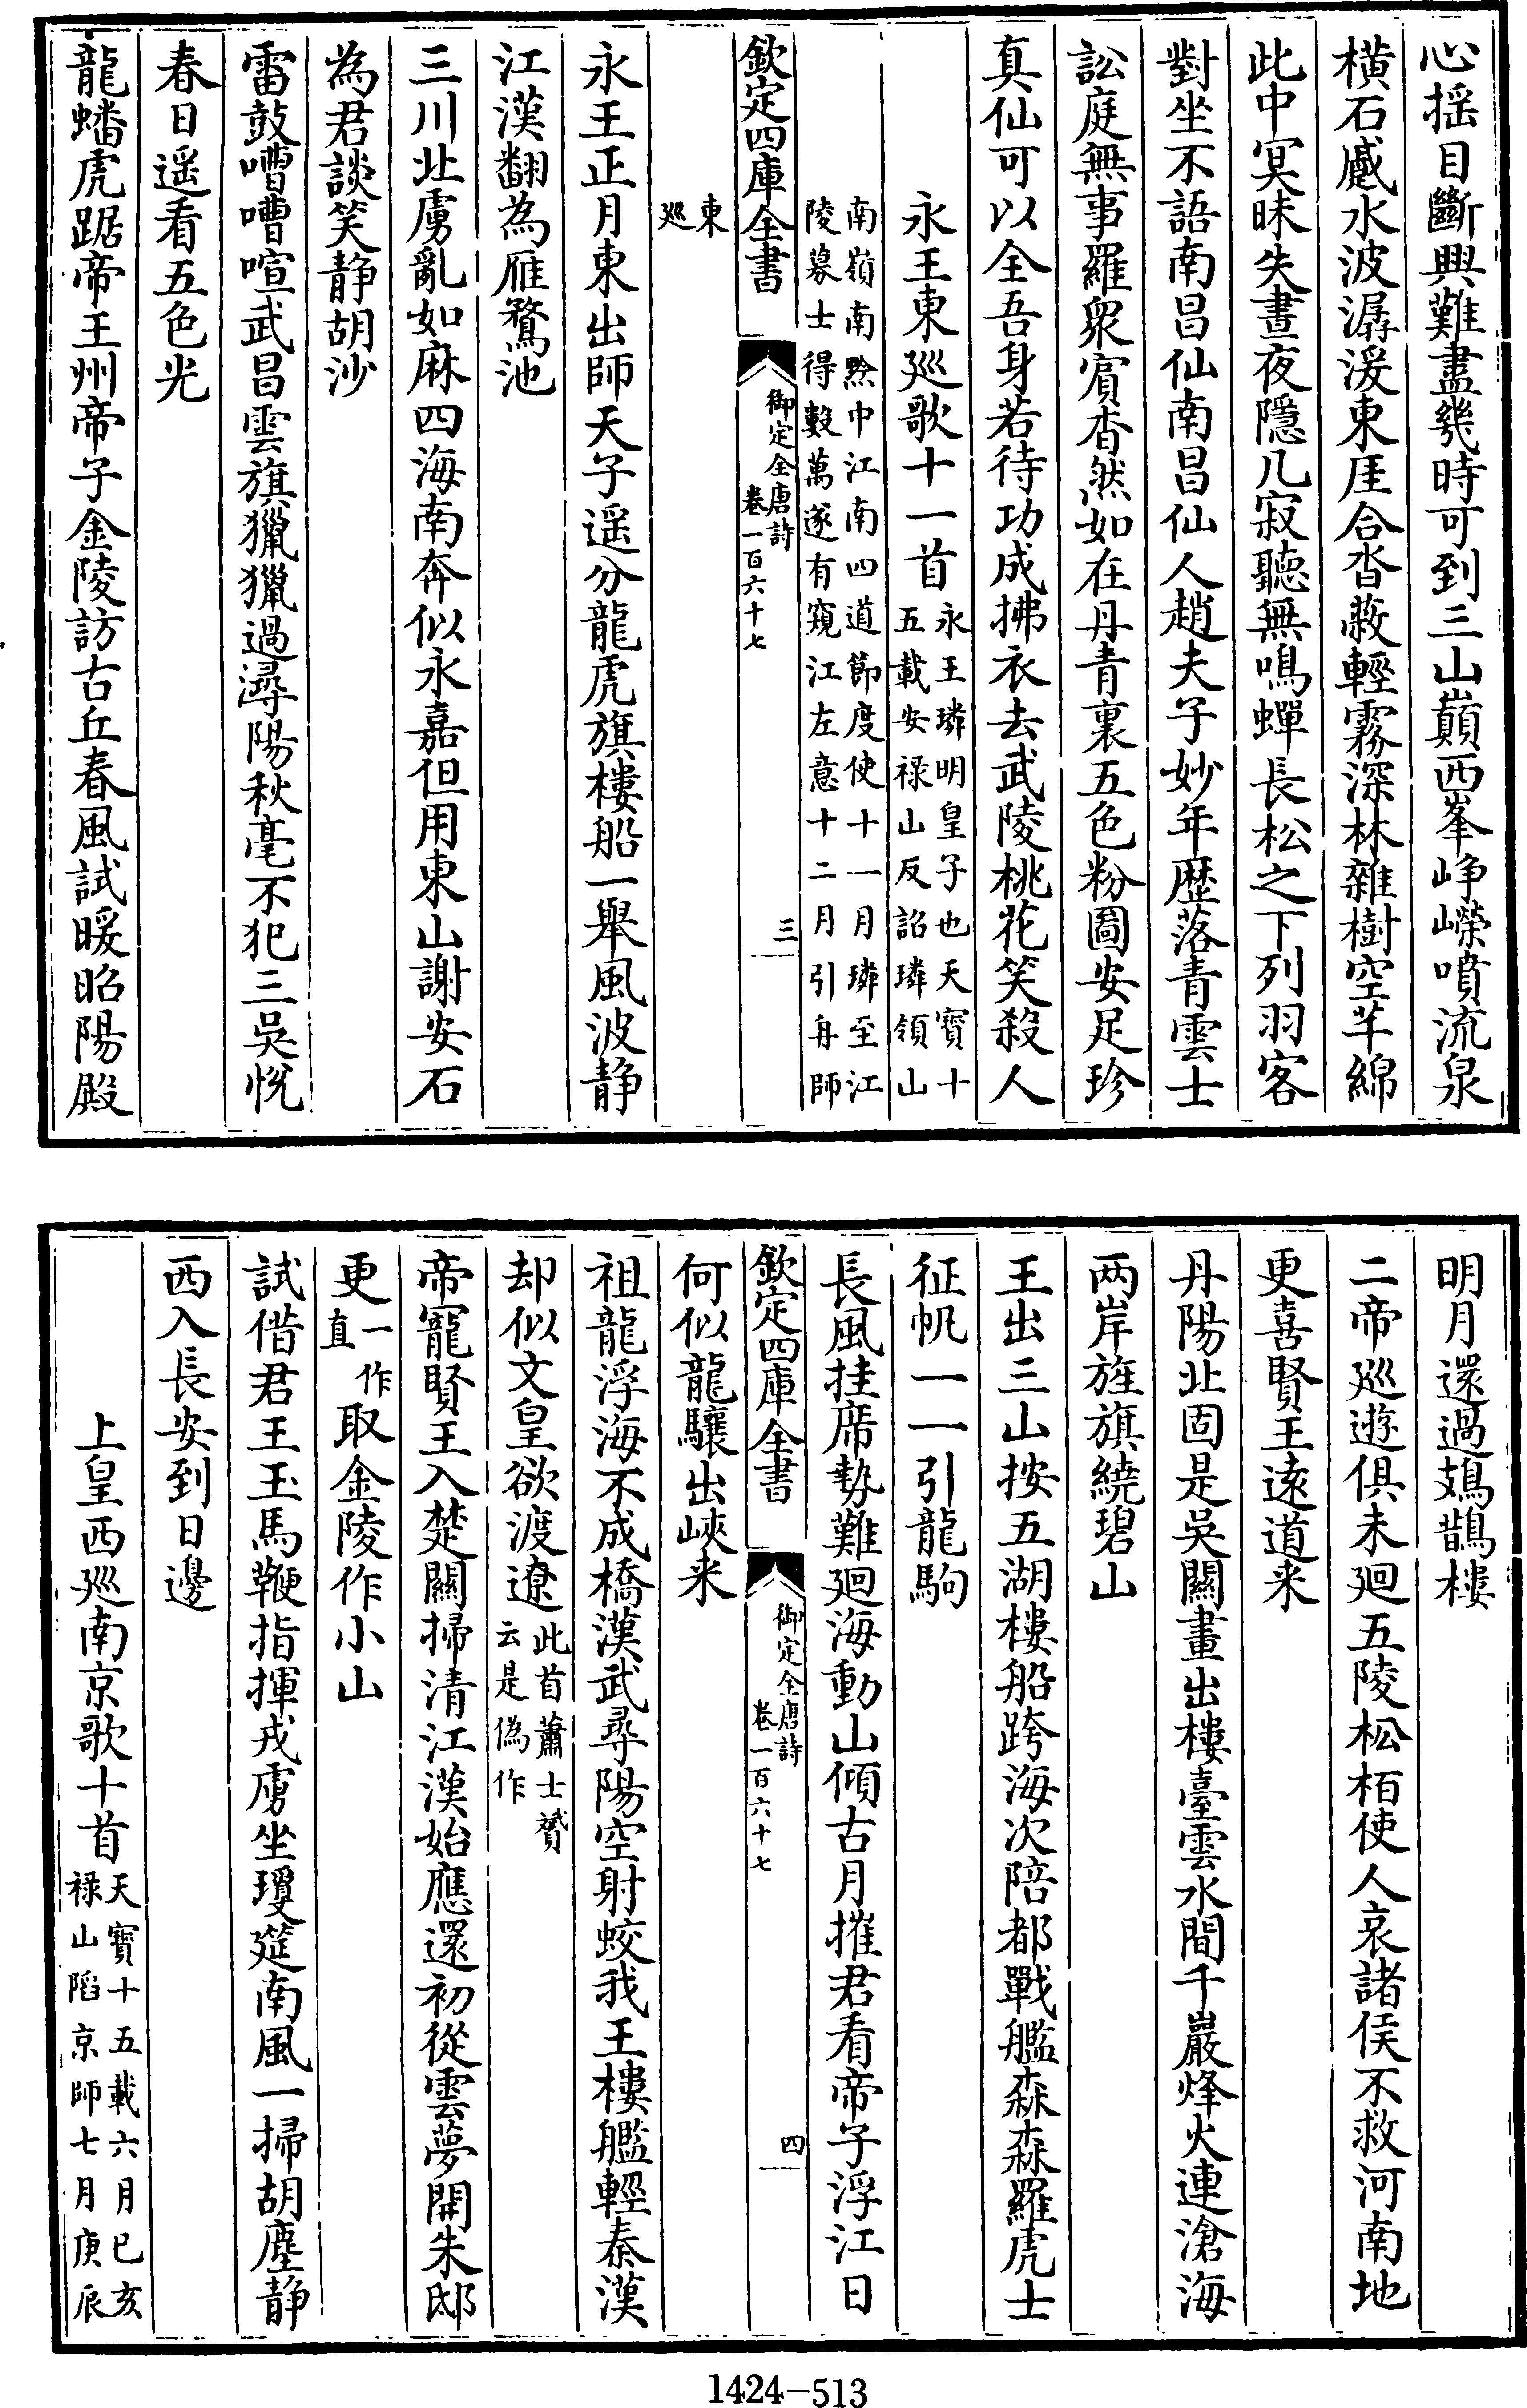 心揺目斷興難盡幾時可到三山巔西峯崢嶸噴流泉
横石蹙水波潺湲東厓合沓蔽輕霧深林雜樹空芊綿
此中冥昧失晝夜隱几寂聽無鳴蟬長松之下列羽客
對坐不語南昌仙南昌仙人趙夫子妙年歴落青雲士
訟庭無事羅衆賓杳然如在丹青裏五色粉圖安足珍
真仙可以全吾身若待功成拂衣去武陵桃花笑殺人
永王東巡歌十一首永王璘明皇子也天寶十
五載安禄山反詔璘領山
南嶺南黔中江南四道節度使十一月璘至江
陵募士得數萬遂有窺江左意十二月引舟師
欽定四庫全書
御定全唐詩
卷一百六十七
三
東
巡
永王正月東出師天子遥分龍虎旗樓船一舉風波静
江漢翻為雁鶩池
三川北虜亂如麻四海南奔似永嘉但用東山謝安石
為君談笑静胡沙
雷鼓嘈嘈喧武昌雲旗獵獵過潯陽秋毫不犯三吳悅
春日遥看五色光
龍蟠虎踞帝王州帝子金陵訪古丘春風試暖昭陽殿
明月還過鳷鵲樓
二帝巡遊俱未廻五陵松栢使人哀諸侯不救河南地
更喜賢王逺道来
丹陽北固是吳關畫出樓臺雲水間千巖烽火連滄海
两岸旌旗繞碧山
王出三山按五湖樓船跨海次陪都戰艦森森羅虎士
征帆一一引龍駒
長風挂席勢難廻海動山傾古月摧君看帝子浮江日
欽定四庫全書
御定全唐詩
卷一百六十七
四
何似龍驤出峽来
祖龍浮海不成橋漢武尋陽空射蛟我王樓艦輕秦漢
却似文皇欲渡遼此首蕭士贇
云是偽作
帝寵賢王入楚關掃清江漢始應還初從雲夢開朱邸
更一作
直取金陵作小山
試借君王玉馬鞭指揮戎虜坐瓊筵南風一掃胡塵静
西入長安到日邊
上皇西巡南京歌十首天寶十五載六月已亥
禄山陷京師七月庚辰
1424—513